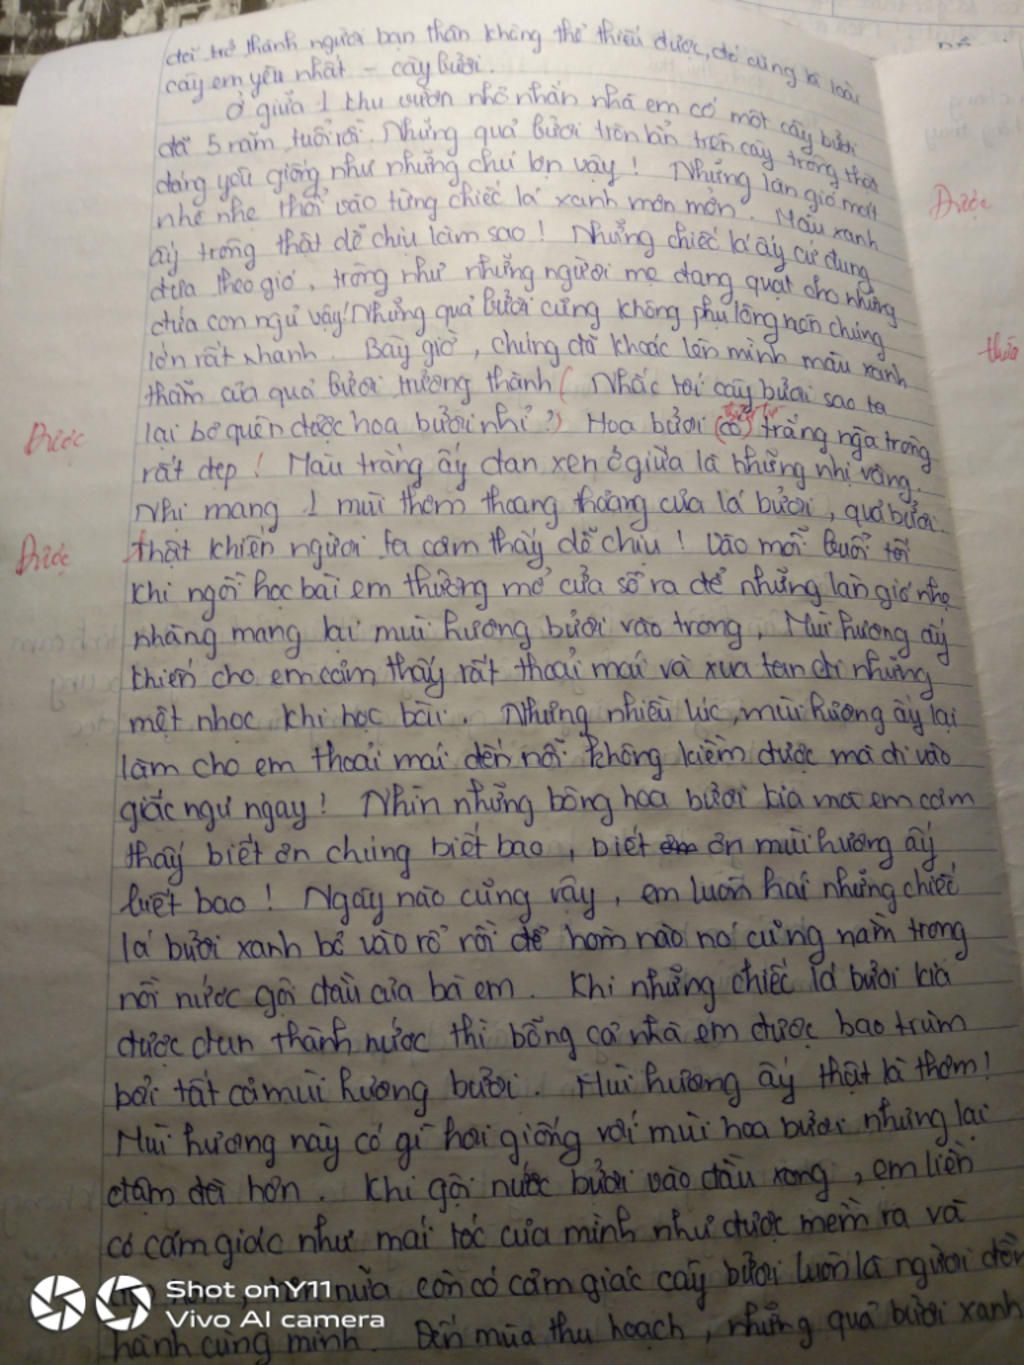 đã trở thành người bạn thân không thể thiếu được, đó cũng là loài
cây em yêu nhất - cây bưởi.
Ở giữa 1 khu vườn nhỏ nhắn nhà em có một cây bưởi
đã 5 năm tuổi rồi. Những quả bưởi tròn lẳn trên cây trông thật
đáng yêu giống như những chú lợn vậy! Những làn gió mát
nhè nhẹ thổi vào từng chiếc lá xanh mơn mởn. Màu xanh
ấy trông thật dễ chịu làm sao! Những chiếc lá ấy cứ đung
đưa theo gió, trông như những người mẹ đang quạt cho những
đứa con ngủ vậy! Những quả bưởi cũng không phụ lòng nên chúng
lớn rất nhanh. Bây giờ, chúng đã khoác lên mình màu xanh
thẫm của quả bưởi trưởng thành ( Nhắc tới cây bưởi sao ta
Được
lại bỏ quên được hoa bưởi nhỉ ?) Hoa bưởi (có) trắng ngà trông
rất đẹp ! Màu trắng ấy đan xen ở giữa là những nhị vàng.
Nhị mang 1 mùi thơm thoang thoảng của lá bưởi, quả bưởi
Được
thật khiến người ta cảm thấy dễ chịu ! Vào mỗi buổi tối
khi ngồi học bài em thường mở cửa sổ ra để những làn gió nhẹ
nhàng mang lại mùi hương bưởi vào trong, Mùi hương ấy
khiến cho em cảm thấy rất thoải mái và xua tan đi những
mệt nhọc khi học bài. Nhưng nhiều lúc, mùi hương ấy lại
làm cho em thoải mái đến nỗi không kiềm được mà đi vào
giấc ngủ ngay! Nhìn những bông hoa bưởi kia mà em cảm
thấy biết ơn chúng biết bao, biết ơn mùi hương ấy
biết bao! Ngày nào cũng vậy, em luôn hái những chiếc
lá bưởi xanh bỏ vào rổ rồi để hôm nào nó cũng nằm trong
nồi nước gội đầu của bà em. Khi những chiếc lá bưởi kia
được đun thành nước thì bỗng cả nhà em được bao trùm
bởi tất cả mùi hương bưởi. Mùi hương ấy thật là thơm!
Mùi hương này có gì hơi giống với mùi hoa bưởi nhưng lại
đậm đà hơn. Khi gội nước bưởi vào đầu xong, em liền
có cảm giác như mái tóc của mình như được mềm ra và
nữa còn có cảm giác cây bưởi luôn là người đồng
hành cùng mình. Đến mùa thu hoạch, những quả bưởi xanh
Được
thừa
Shot on Y11
Vivo AI camera